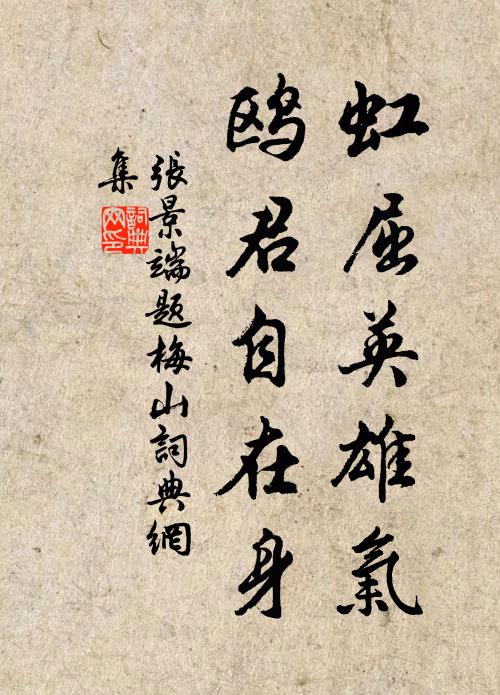 虹屈英雄氣
鸥君自在身
張景端題梅山詞典網
集
詞典网印